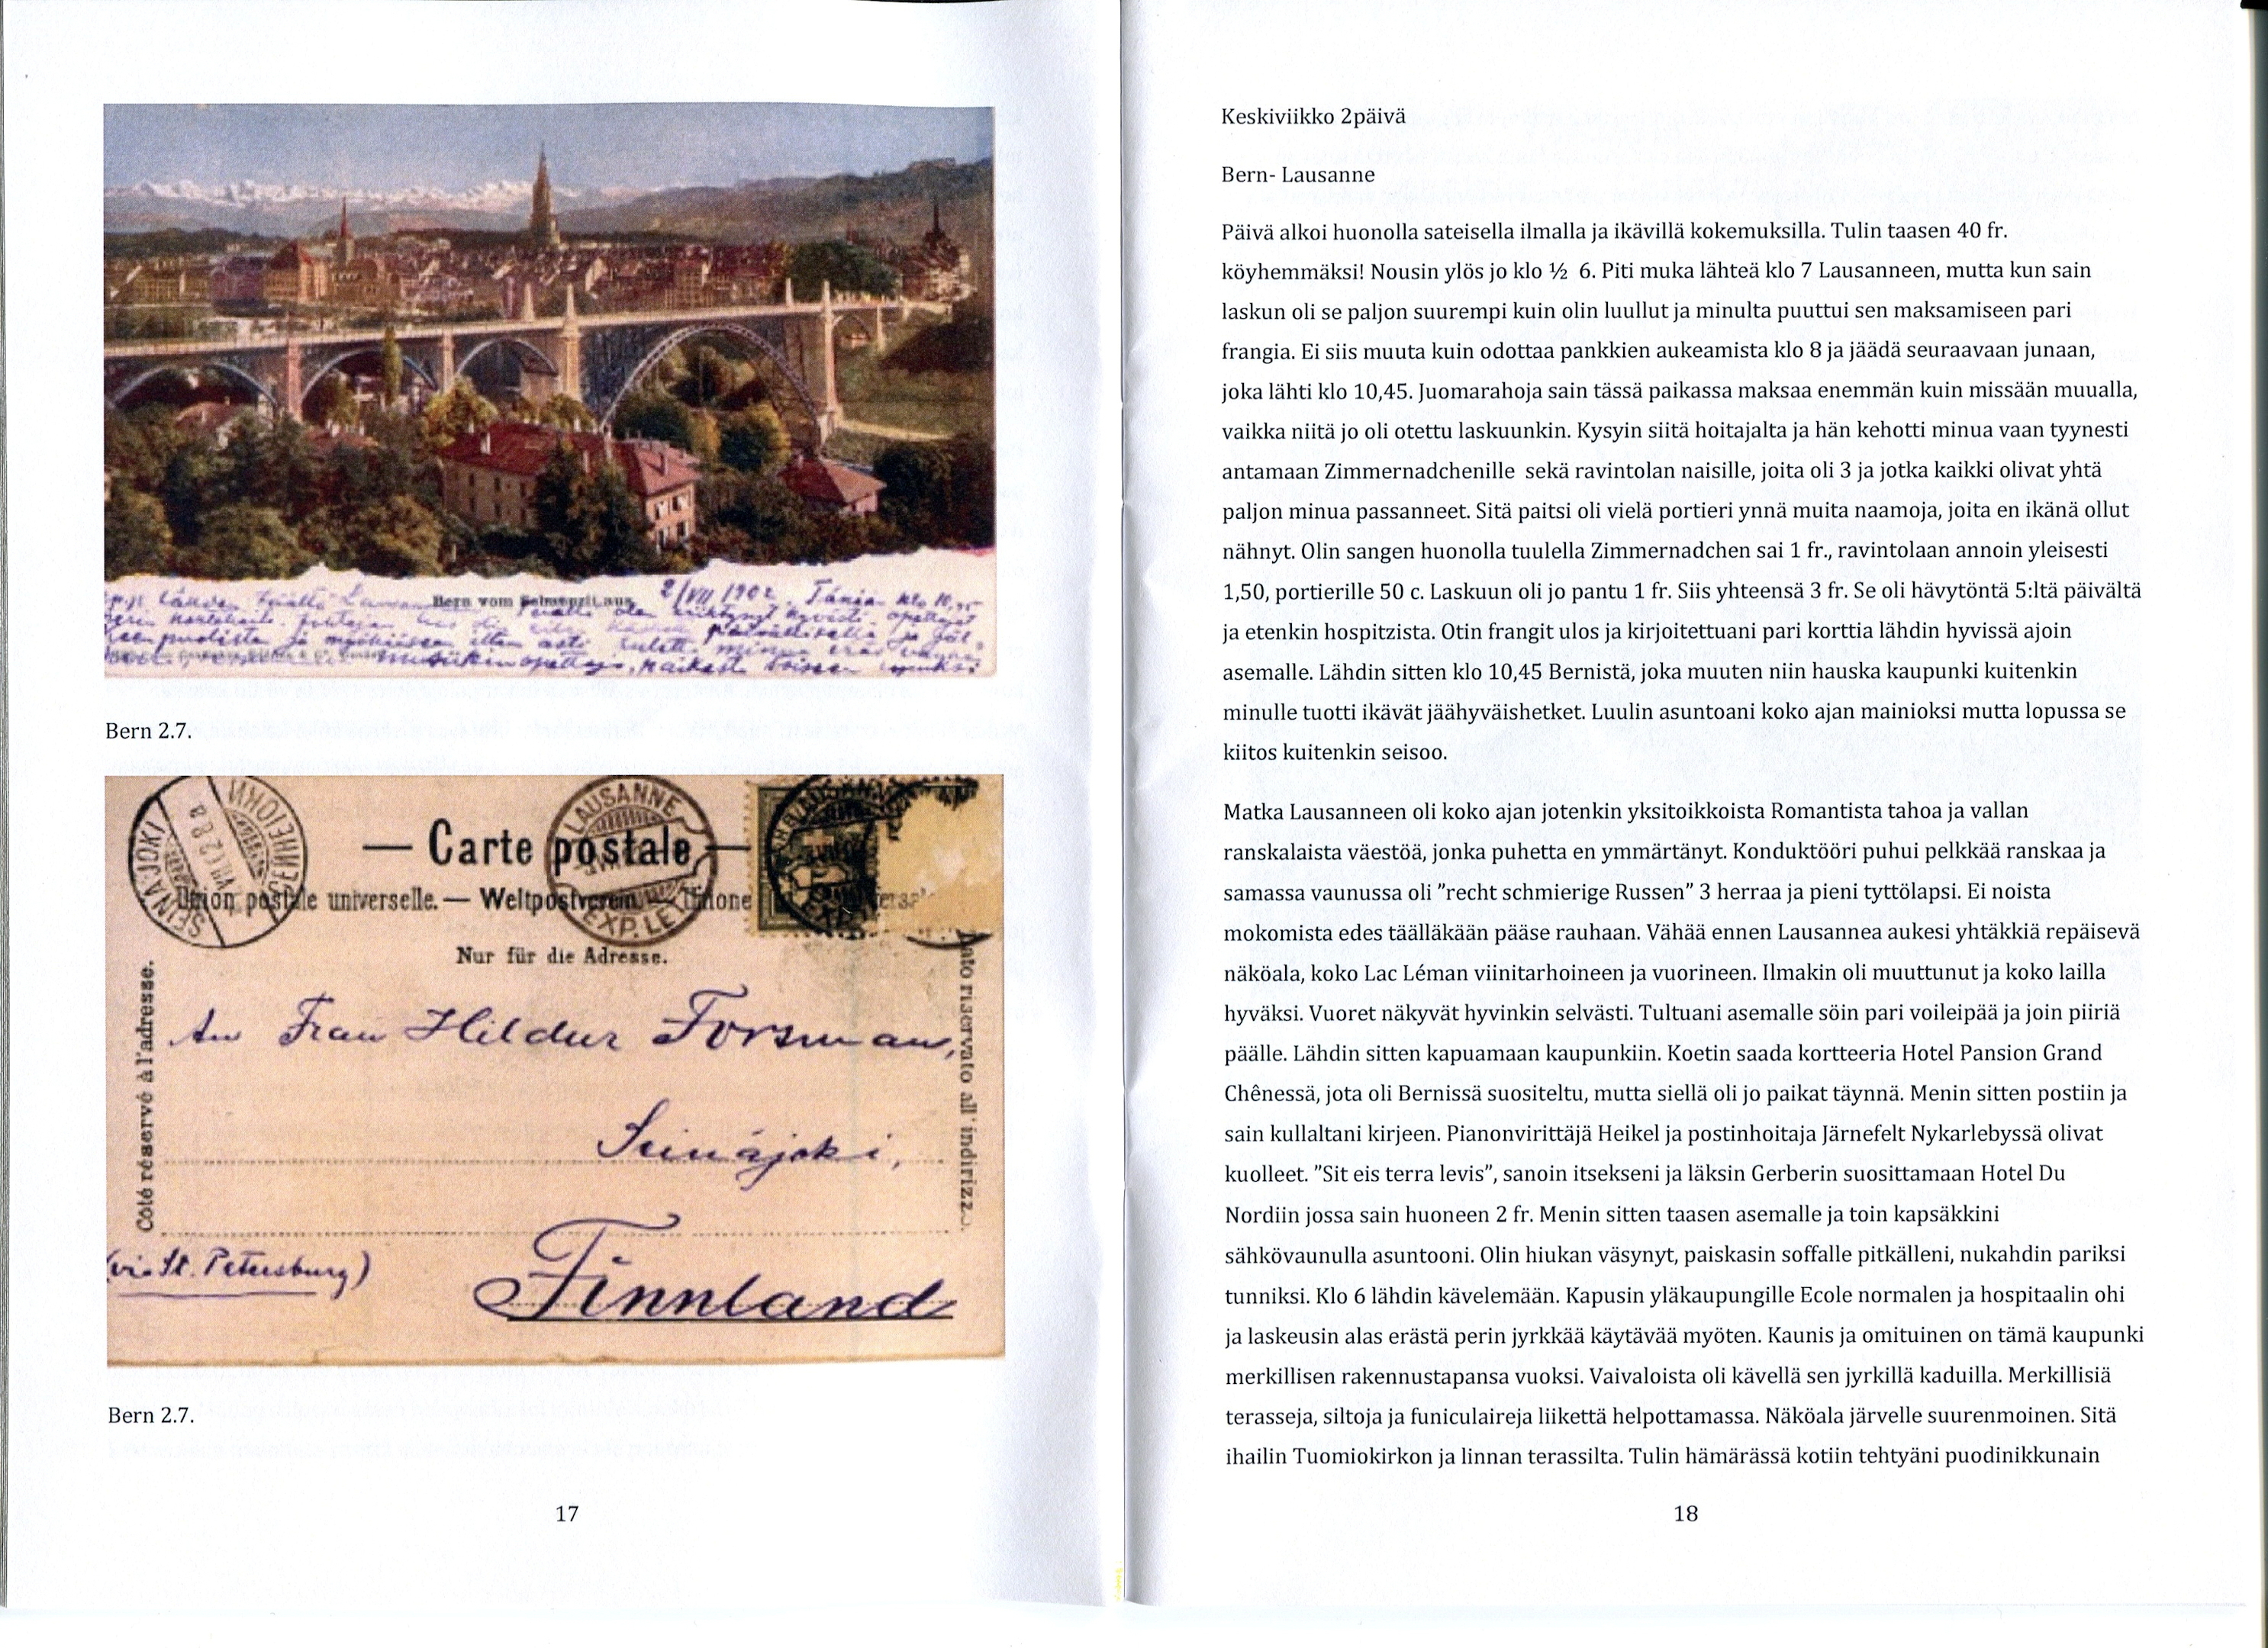 Bern vom Schanzli aus
2/VII 1902. Tänään klo 10,45
Bern 2.7.
SEINÄJOKI
VII.02 8 a
SEINEJOKI
LAUSANNE
EXP. LET
— Carte postale —
Union postale universelle. — Weltpostverein. — Unione
Nur für die Adresse.
Côté réservé à l'adresse.
Lato riservato all' indirizzo.
An Frau Hildur Forsman,
Seinäjoki,
(via St. Petersburg)
Finnland
Bern 2.7.
17
Keskiviikko 2päivä
Bern- Lausanne
Päivä alkoi huonolla sateisella ilmalla ja ikävillä kokemuksilla. Tulin taasen 40 fr.
köyhemmäksi! Nousin ylös jo klo ½ 6. Piti muka lähteä klo 7 Lausanneen, mutta kun sain
laskun oli se paljon suurempi kuin olin luullut ja minulta puuttui sen maksamiseen pari
frangia. Ei siis muuta kuin odottaa pankkien aukeamista klo 8 ja jäädä seuraavaan junaan,
joka lähti klo 10,45. Juomarahoja sain tässä paikassa maksaa enemmän kuin missään muualla,
vaikka niitä jo oli otettu laskuunkin. Kysyin siitä hoitajalta ja hän kehotti minua vaan tyynesti
antamaan Zimmernadchenille sekä ravintolan naisille, joita oli 3 ja jotka kaikki olivat yhtä
paljon minua passanneet. Sitä paitsi oli vielä portieri ynnä muita naamoja, joita en ikänä ollut
nähnyt. Olin sangen huonolla tuulella Zimmernadchen sai 1 fr., ravintolaan annoin yleisesti
1,50, portierille 50 c. Laskuun oli jo pantu 1 fr. Siis yhteensä 3 fr. Se oli hävytöntä 5:ltä päivältä
ja etenkin hospitzista. Otin frangit ulos ja kirjoitettuani pari korttia lähdin hyvissä ajoin
asemalle. Lähdin sitten klo 10,45 Bernistä, joka muuten niin hauska kaupunki kuitenkin
minulle tuotti ikävät jäähyväishetket. Luulin asuntoani koko ajan mainioksi mutta lopussa se
kiitos kuitenkin seisoo.
Matka Lausanneen oli koko ajan jotenkin yksitoikkoista Romantista tahoa ja vallan
ranskalaista väestöä, jonka puhetta en ymmärtänyt. Konduktööri puhui pelkkää ranskaa ja
samassa vaunussa oli ”recht schmierige Russen” 3 herraa ja pieni tyttölapsi. Ei noista
mokomista edes täälläkään pääse rauhaan. Vähää ennen Lausannea aukesi yhtäkkiä repäisevä
näköala, koko Lac Léman viinitarhoineen ja vuorineen. Ilmakin oli muuttunut ja koko lailla
hyväksi. Vuoret näkyvät hyvinkin selvästi. Tultuani asemalle söin pari voileipää ja join piiriä
päälle. Lähdin sitten kapuamaan kaupunkiin. Koetin saada kortteeria Hotel Pansion Grand
Chênessä, jota oli Bernissä suositeltu, mutta siellä oli jo paikat täynnä. Menin sitten postiin ja
sain kullaltani kirjeen. Pianonvirittäjä Heikel ja postinhoitaja Järnefelt Nykarlebyssä olivat
kuolleet. ”Sit eis terra levis”, sanoin itsekseni ja läksin Gerberin suosittamaan Hotel Du
Nordiin jossa sain huoneen 2 fr. Menin sitten taasen asemalle ja toin kapsäkkini
sähkövaunulla asuntooni. Olin hiukan väsynyt, paiskasin soffalle pitkälleni, nukahdin pariksi
tunniksi. Klo 6 lähdin kävelemään. Kapusin yläkaupungille Ecole normalen ja hospitaalin ohi
ja laskeusin alas erästä perin jyrkkää käytävää myöten. Kaunis ja omituinen on tämä kaupunki
merkillisen rakennustapansa vuoksi. Vaivaloista oli kävellä sen jyrkillä kaduilla. Merkillisiä
terasseja, siltoja ja funiculaireja liikettä helpottamassa. Näköala järvelle suurenmoinen. Sitä
ihailin Tuomiokirkon ja linnan terassilta. Tulin hämärässä kotiin tehtyäni puodinikkunain
18